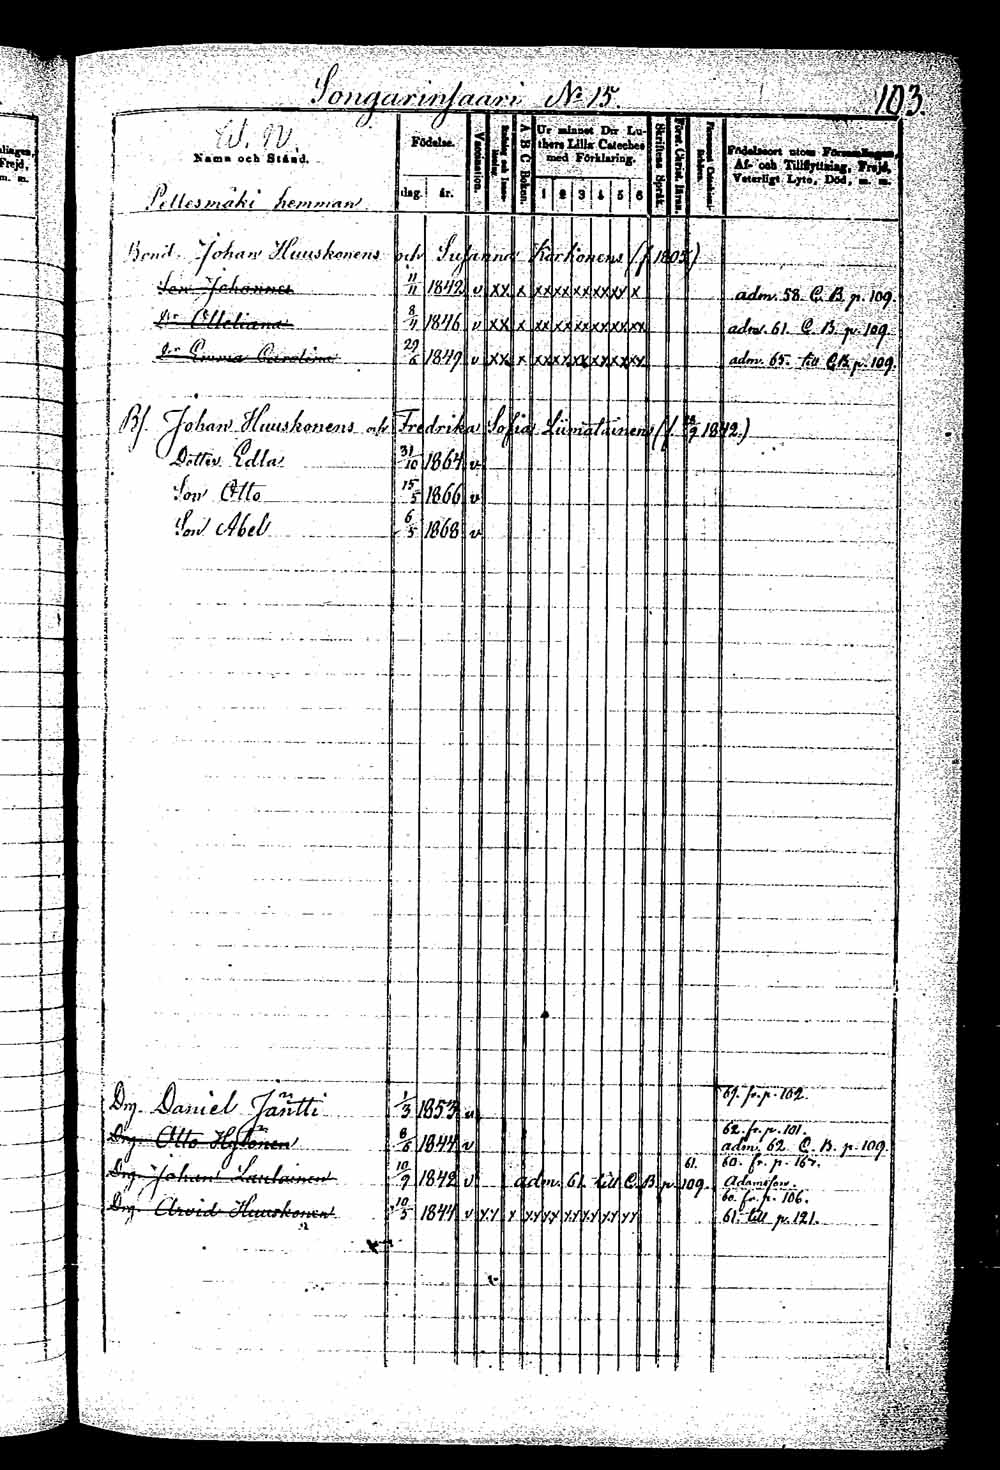 Songarinsaari № 15.
103.
Nama och Stånd.
Födelse.
dag. år.
Vaccination.
A B C Boken.
Ur minnet Dir Lu-
thers Lilla Cateches
med Förklaring.
1 2 3 4 5 6
Skriftens Språk.
Födelseort utom Församlingen,
Af- och Tillflyttning, Frejd,
Veterligt Lyte, Död, m. m.
Pellesmäki hemman
Bond. Johan Huuskonens och Susanna Korhonens (f. 1805)
Son Johannes 11/11 1842 v xx x xx xx xx xx xx x adm. 58. C. B. p. 109.
Dr Ottiliana 8/11 1846 v xx x xx xx xx xx xx xx adm. 61. C. B. p. 109.
Dr Emma Carolina 29/6 1849 v xx x xx xx xx xx xx xx adm. 65. till C.B. p. 109.
Bs. Johan Huuskonens och Fredrika Sofia Liimatainens (f. 1842.)
Dotter Edla 31/10 1864 v
Son Otto 15/5 1866 v
Son Abel 6/5 1868 v
67. fr. p. 102.
Drg. Daniel Jäntti 1/3 1853 v
62. fr. p. 101.
Drg. Otto Hytönen 8/6 1844 v adm. 62. C. B. p. 109.
60. fr. p. 167.
Drg. Johan Laulainen 10/9 1842 v adm. 61. till C. B. p. 109. 61. Adamsson.
60. fr. p. 106.
Drg. Arvid Huuskonen 10/5 1844 v xx x xx xx xx xx xx xx 61. till p. 121.